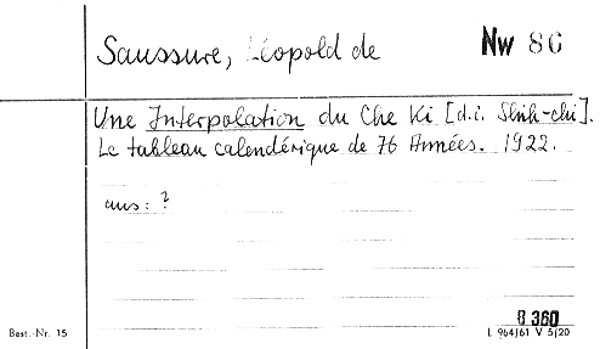 Saussure, Léopold de
Nw 86
Une Interpolation du Che Ki [d.i. Shih-chi].
Le tableau calendérique de 76 Années. 1922.
aus: ?
8 360
Best.-Nr. 15
L 964/61 V 5/20